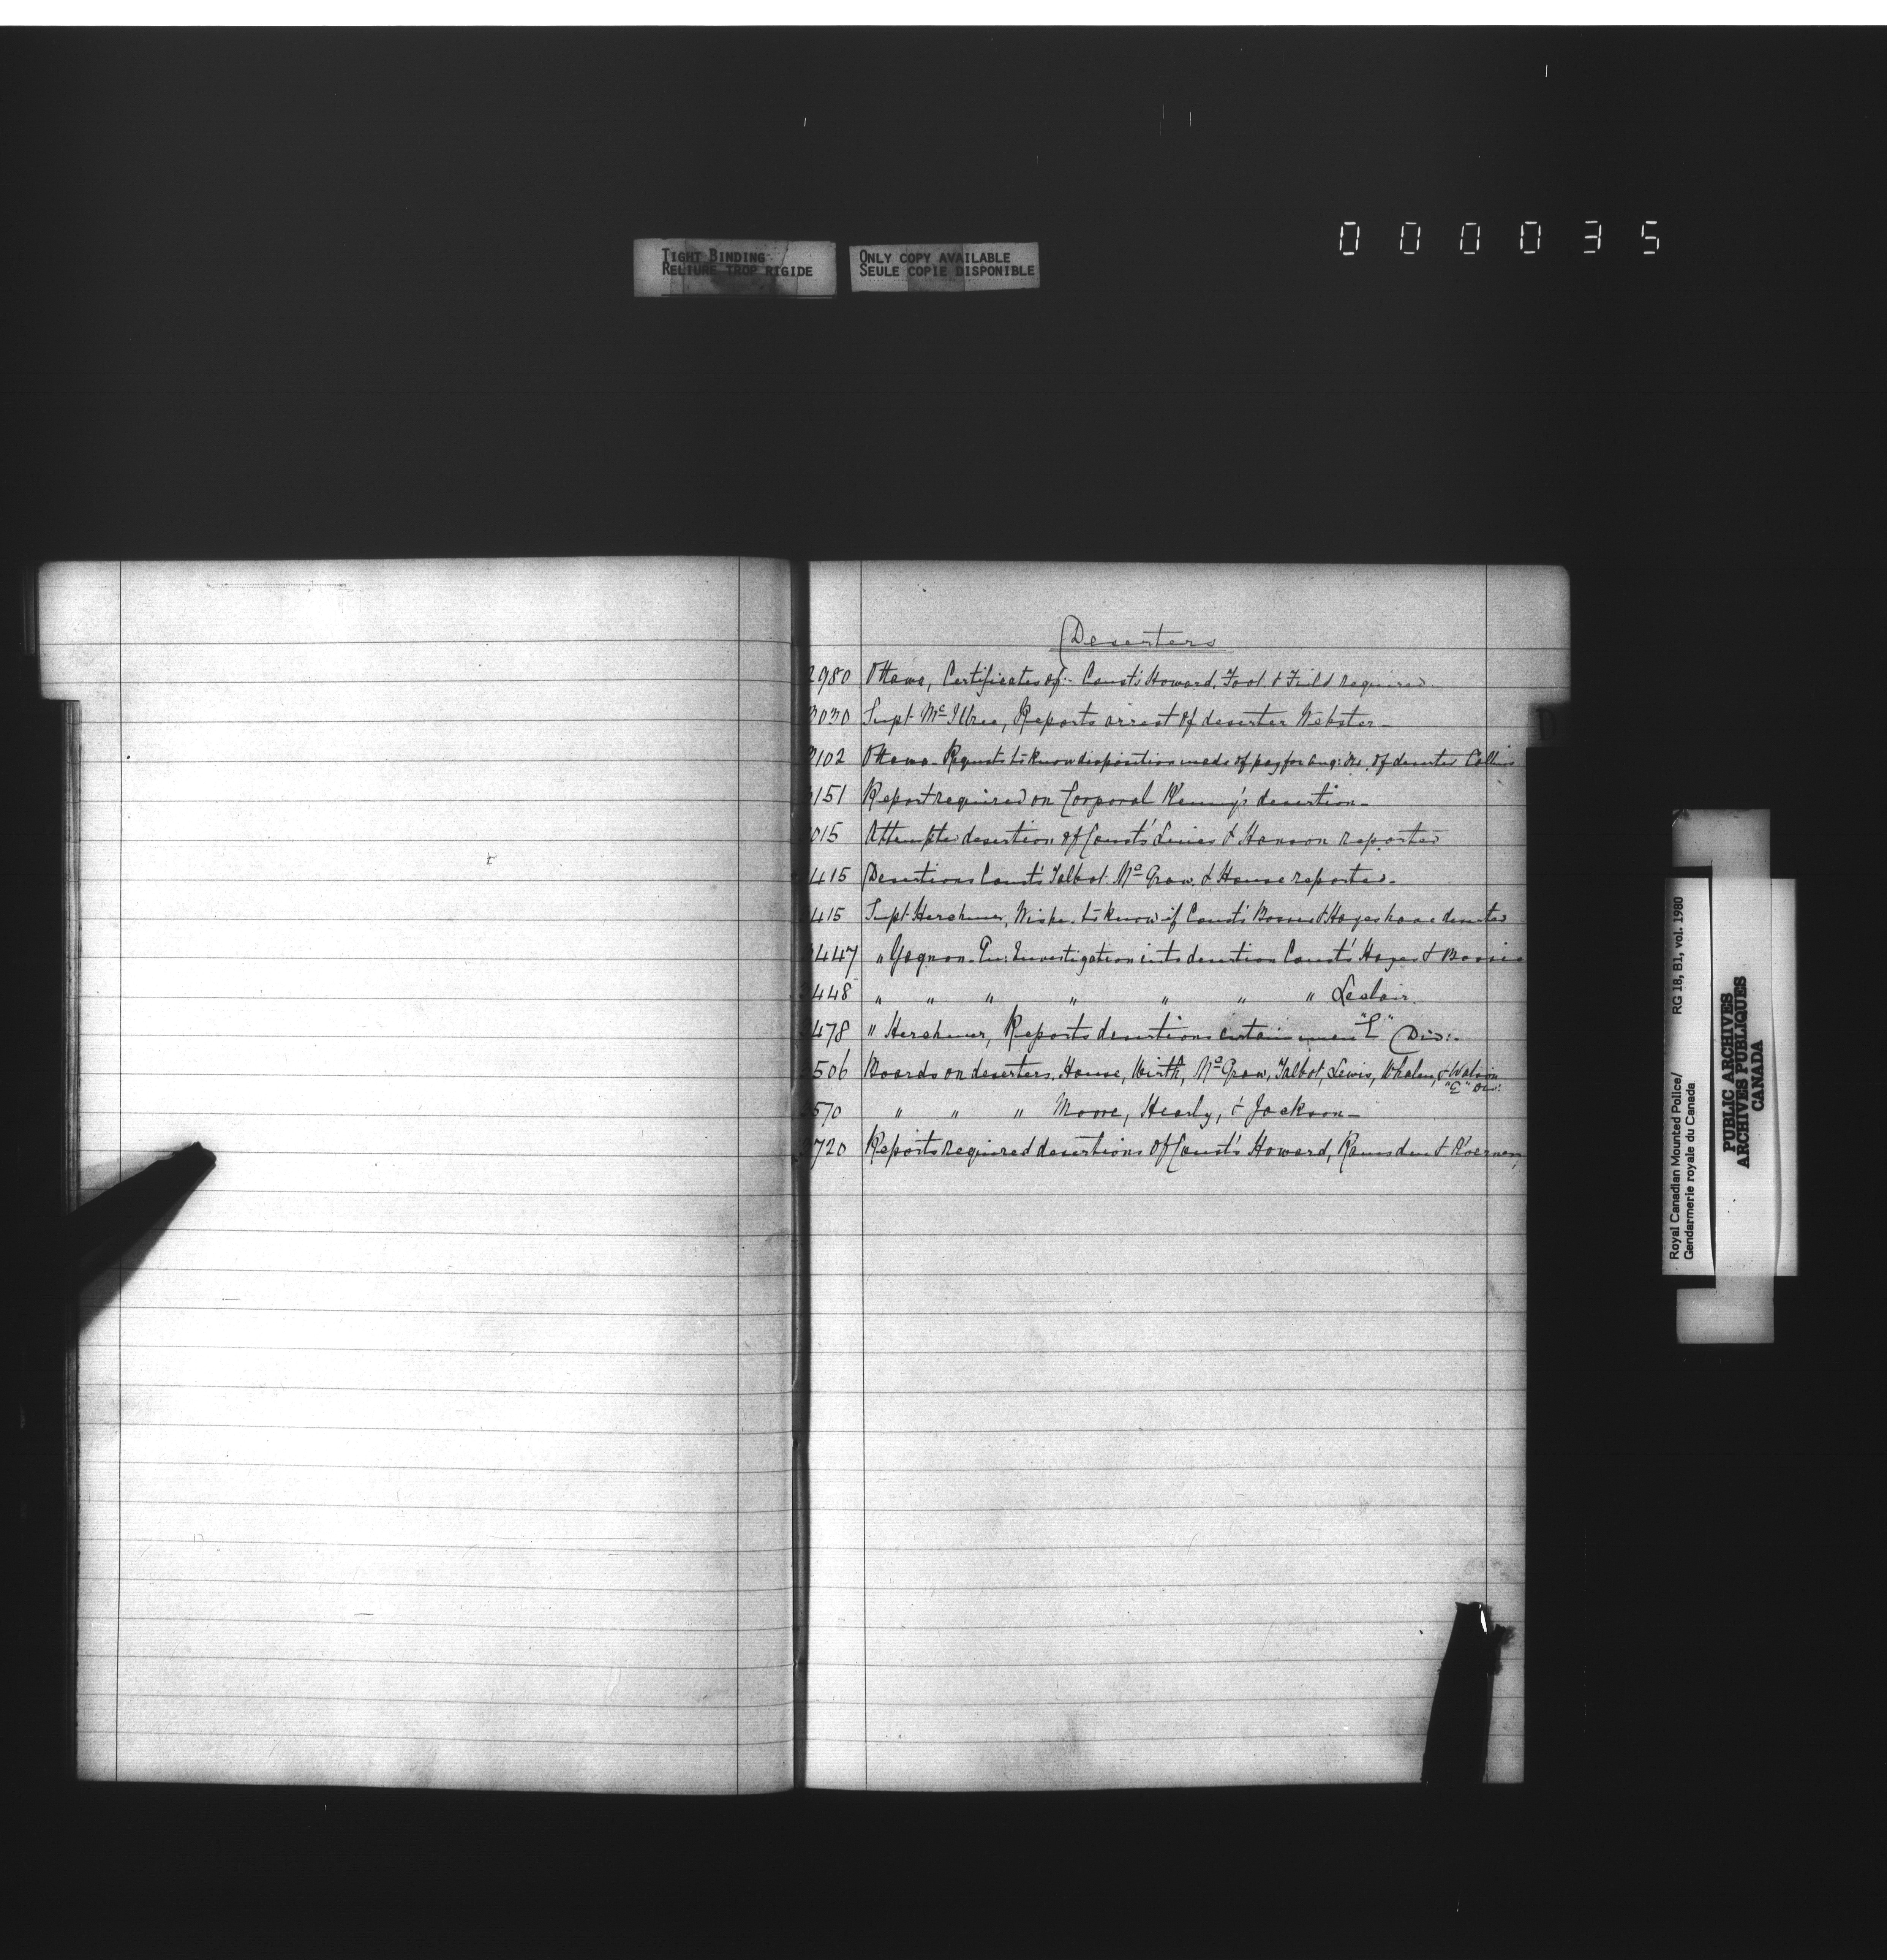 000035
TIGHT BINDING
RELIURE TROP RIGIDE
ONLY COPY AVAILABLE
SEULE COPIE DISPONIBLE
Deserters
2980 Ottawa, Certificates of:- Const's Howard, Foot & Field required
3030 Supt. McIllree, Reports arrest of deserter Webster-
3102 Ottawa- Requests to know disposition made of pay for Aug: of deserter Collins
3151 Report required on Corporal Kenny's desertion-
015 Attempted desertion of Const's & Hanson reported
415 Desertions Const's Talbot, McGraw, & House reported-
415 Supt. Herchmer, Wishes to know if Const's & Hayes have deserted
3447 " Gagnon- Investigation into desertion Const's Hayes &
3448 " " " " " " " Leclair
478 " Herchmer, Reports desertions certain men "E" Div:-
3506 Boards on deserters, House, Wirth, McGraw, Talbot, Lewis, Whalen, & Watson
"E" Div:
3570 " " " Moore, Hearly, & Jackson-
3720 Reports required desertions of Const's Howard, Ramsden &
D
Royal Canadian Mounted Police/ RG 18, B1, vol. 1980
Gendarmerie royale du Canada
PUBLIC ARCHIVES
ARCHIVES PUBLIQUES
CANADA